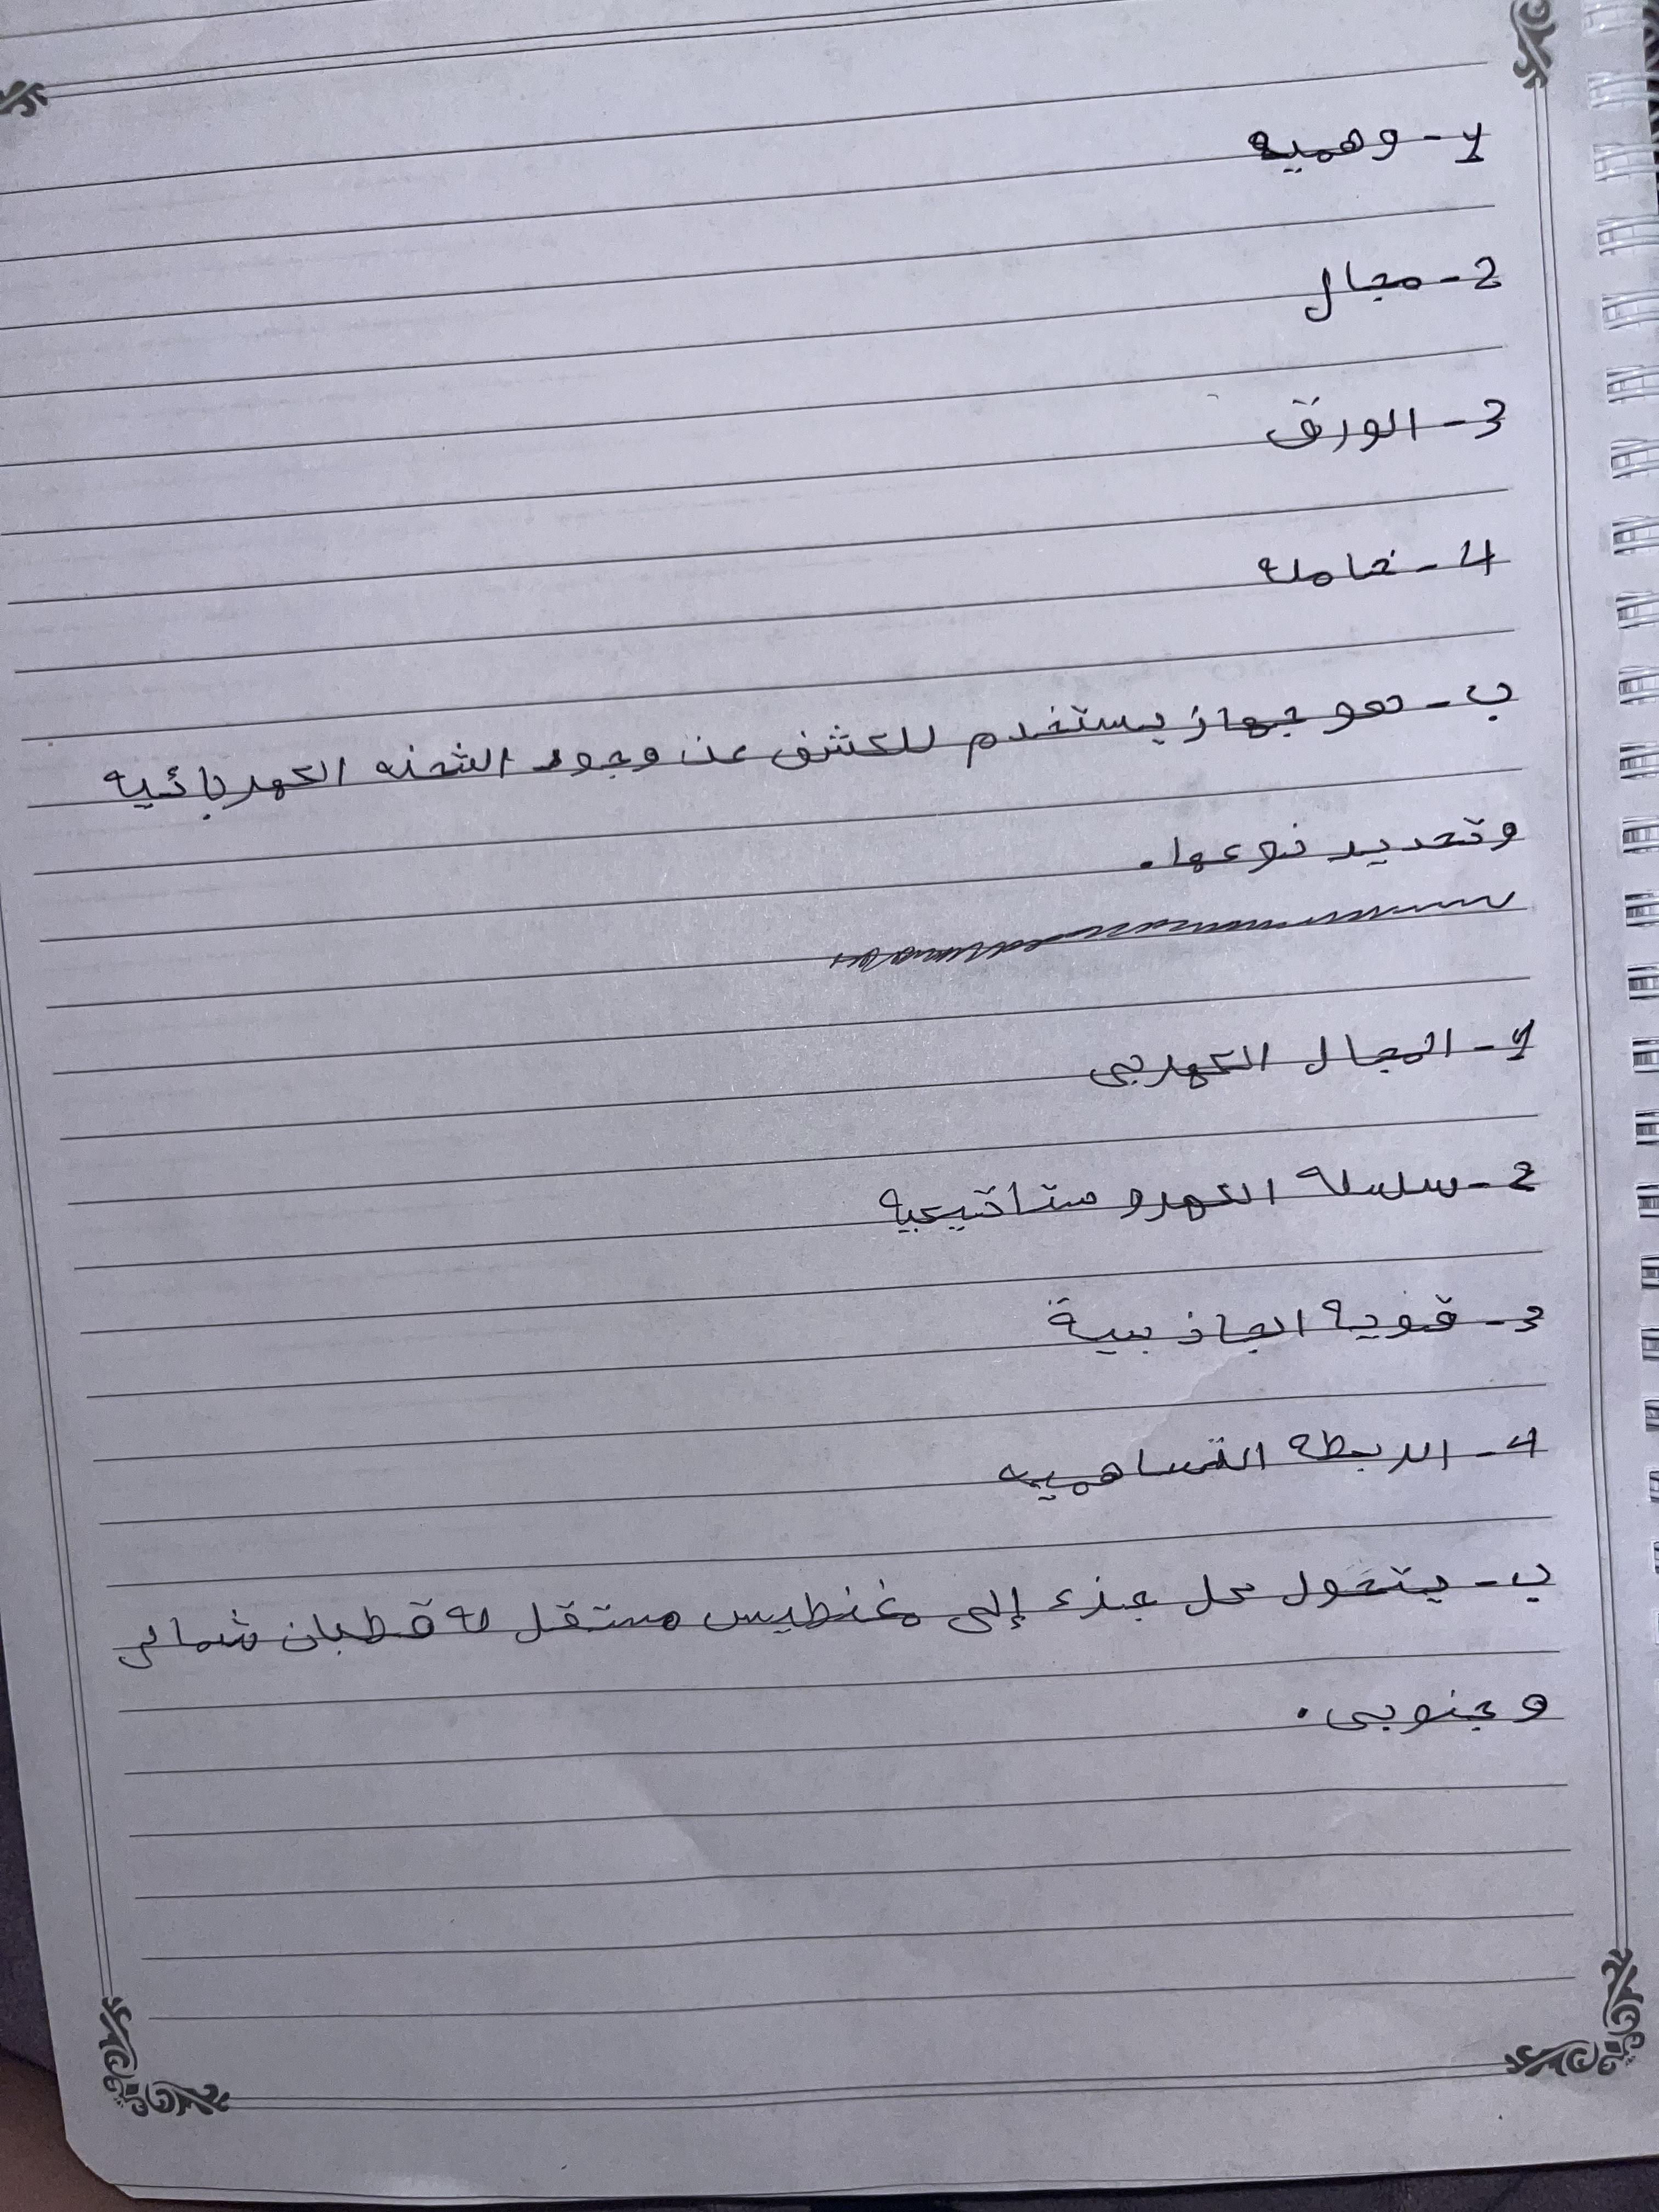 1- وهميه
2- مجال
3- الورق
4- خامله
ب- هو جهاز يستخدم للكشف عن وجود الشحنه الكهربائيه
وتحديد نوعها.
1- المجال الكهربي
2- سلسله الكهروستاتيكيه
3- قويه الجاذبية
4- الربطه التساهميه
ب- يتحول كل جزء إلى مغنطيس مستقل له قطبان شمالى
و جنوبى.